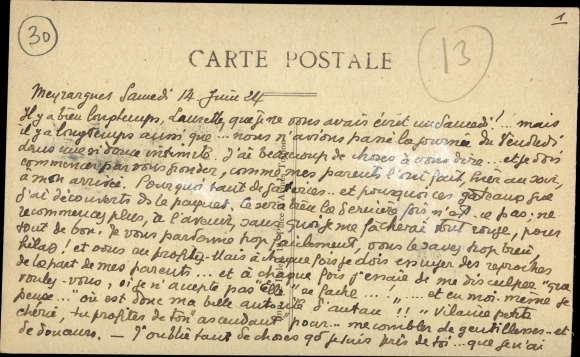 1
30
13
CARTE POSTALE
Meyrargues Samedi 14 Juin 24
Il y a bien longtemps, Laurette, que je ne vous avais écrit un Samedi!... mais
il y a longtemps aussi que... nous n'avions passé la journée du Vendredi
dans une si douce intimité. J'ai beaucoup de choses à vous dire... et je dois
commencer par vous gronder, comme mes parents l'ont fait, hier au soir,
à mon arrivée. Pourquoi tant de ... et pourquoi ces gâteaux que
j'ai découverts ds le paquet. Ce sera bien la dernière fois n'est-ce pas; ne
recommencez plus, à l'avenir, sans quoi je me fâcherai tout rouge, pour
tout de bon. Je vous pardonne trop facilement, vous le savez trop bien
hélas! et vous en profitez. Mais à chaque fois je dois essuyer des reproches
de la part de mes parents... et à chaque fois j'essaie de me disculper "que
voulez-vous, si je n'accepte pas "Elle" se fâche... "... et en moi-même je
pense... "où est donc ma belle autorité d'antan!! " Vilaine petite
chérie, tu profites de ton "ascendant" pour... me combler de gentillesses et
de douceurs. — J'oublie tant de choses qd je suis près de toi... que je n'ai